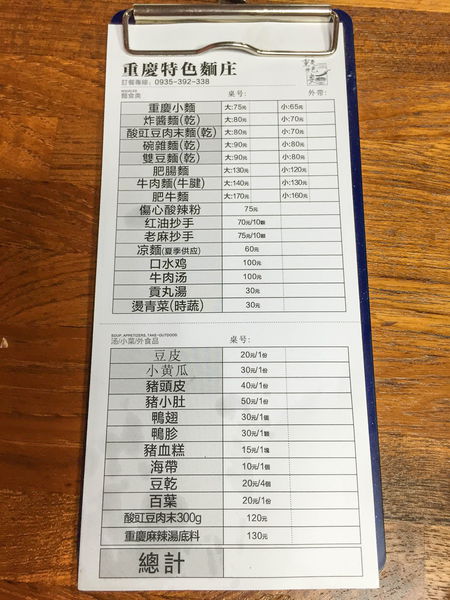 重慶特色麵庄
訂餐專線: 0935-392-338
NOODLES
麵食类 桌号: 外带:
重慶小麵 大:75元 小:65元
炸醬麵(乾) 大:80元 小:70元
酸豇豆肉末麵(乾) 大:80元 小:70元
碗雜麵(乾) 大:90元 小:80元
雙豆麵(乾) 大:90元 小:80元
肥腸麵 大:130元 小:120元
牛肉麵(牛腱) 大:140元 小:130元
肥牛麵 大:170元 小:160元
傷心酸辣粉 75元
红油抄手 70元/10顆
老麻抄手 75元/10顆
凉麵(夏季供应) 60元
口水鸡 100元
牛肉汤 100元
貢丸湯 30元
燙青菜(時蔬) 30元
SOUP, APPETIZERS, TAKE-OUTDOOS
汤/小菜/外食品 桌号:
豆皮 20元/1份
小黃瓜 30元/1份
豬頭皮 40元/1份
豬小肚 50元/1份
鴨翅 30元/1個
鴨胗 30元/1顆
豬血糕 15元/1塊
海帶 10元/1個
豆乾 20元/4個
百葉 20元/1份
酸豇豆肉末300g 120元
重慶麻辣湯底料 130元
總計